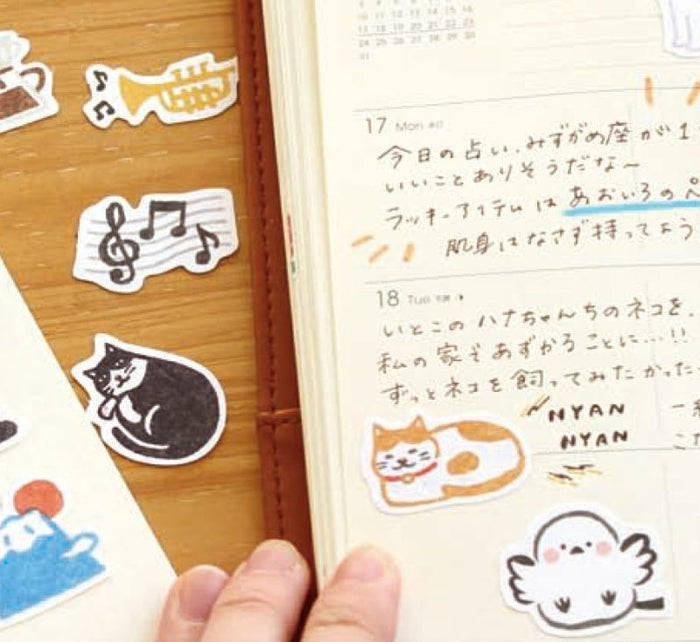 11 12 13 14 15 16
17 18 19 20 21 22 23
24 25 26 27 28 29 30
31
17 Mon
今日の占い、みずがめ座が1
いいことありそうだな〜
ラッキーアイテムは あおいろのペ
肌身はなさず持ってよう
18 Tue
いとこのハナちゃんちのネコを、
私の家であずかることに…!!
ずっとネコを飼ってみたかった
NYAN
NYAN